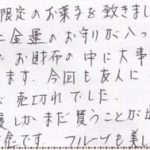 限定のお菓子を致きまし
金運のお守りが入っ
お財布の中に大事
ます。今回も友人に
売切れでした。
しかまだ買うことが出
念です。フルーツも美し